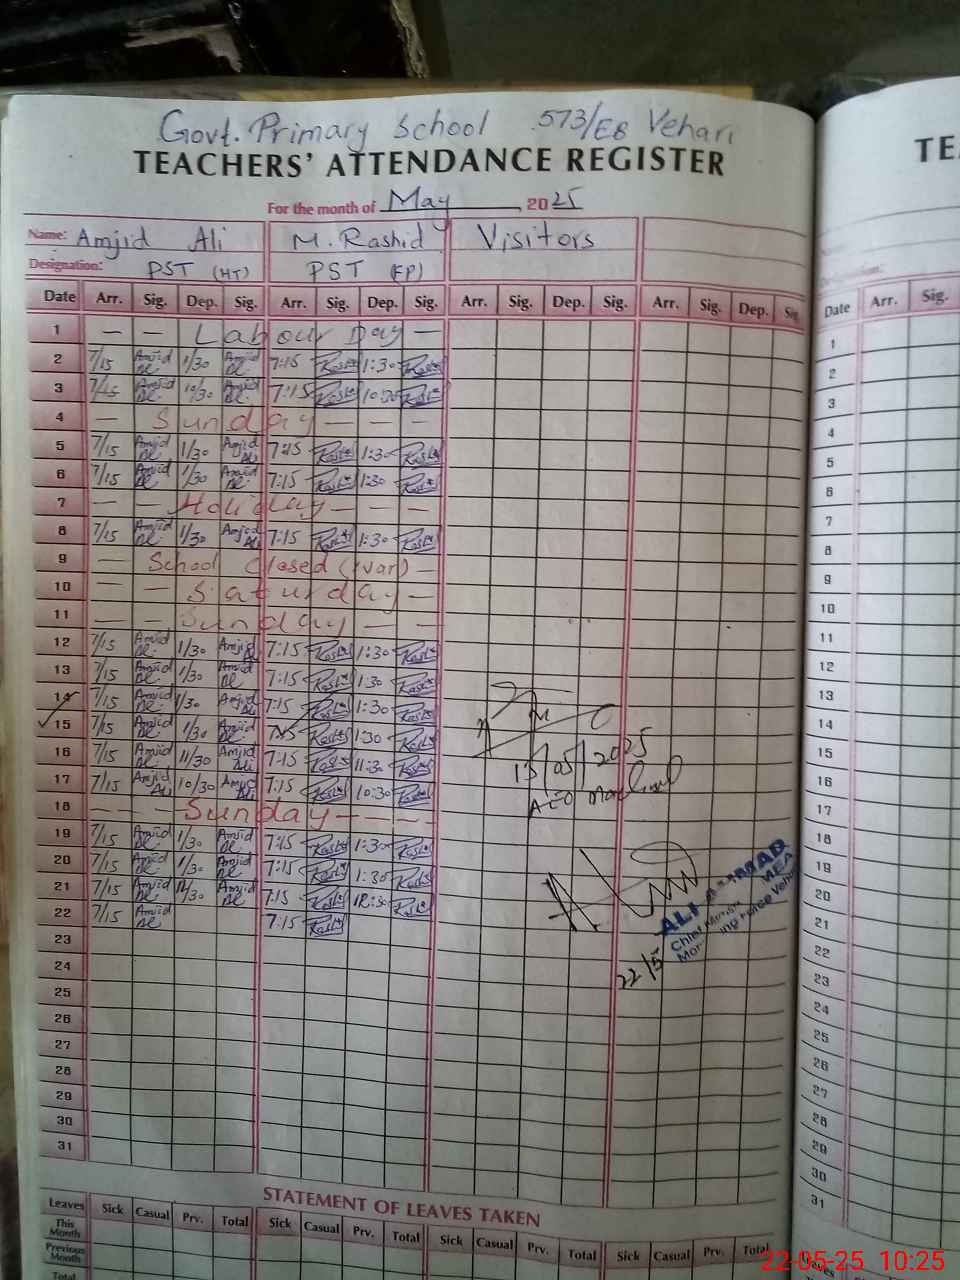 Govt. Primary School 573/EB Vehari
TEACHERS' ATTENDANCE REGISTER
For the month of May, 2025
Name: Amjid Ali M. Rashid Visitors
Designation: PST (HT) PST (FP)
Date Arr. Sig. Dep. Sig. Arr. Sig. Dep. Sig. Arr. Sig. Dep. Sig. Arr. Sig. Dep. Sig.
1 — — Labour Day —
2 7/15 Amjid Al. 1/30 Amjid Al. 7:15 Rashid 1:30 Rashid
3 7/15 Amjid Al. 10/30 Amjid Al. 7:15 Rashid 10:30 Rashid
4 — Sunday — — —
5 7/15 Amjid Al. 1/30 Amjid Ali 7:15 Rashid 1:30 Rashid
6 7/15 Amjid Al. 1/30 Amjid Al. 7:15 Rashid 1:30 Rashid
7 — — Holiday — — —
8 7/15 Amjid Al. 1/30 Amjid Ali 7:15 Rashid 1:30 Rashid
9 — School Closed (war) —
10 — — Saturday —
11 — — Sunday — —
12 7/15 Amjid Al. 1/30 Amjid Al. 7:15 Rashid 1:30 Rashid
13 7/15 Amjid Al. 1/30 Amjid Al. 7:15 Rashid 1:30 Rashid
14 7/15 Amjid Al. 1/30 Amjid Al. 7:15 Rashid 1:30 Rashid
15 7/15 Amjid Al. 1/30 Amjid Al. 7:15 Rashid 1:30 Rashid
16 7/15 Amjid Al. 11/30 Amjid Ali 7:15 Rashid 11:30 Rashid
17 7/15 Amjid Ali 10/30 Amjid Ali 7:15 Rashid 10:30 Rashid
18 — — — Sunday — — — —
19 7/15 Amjid Al. 1/30 Amjid Al. 7:15 Rashid 1:30 Rashid
20 7/15 Amjid Al. 1/30 Amjid Al. 7:15 Rashid 1:30 Rashid
21 7/15 Amjid Al. 12/30 Amjid Al. 7:15 Rashid 12:30 Rashid
22 7/15 Amjid Al. 7:15 Rashid
23
24
25
26
27
28
29
30
31
/05/2025
AEO
ALI
MEA
Chief Minister
Monitoring Force Vehari
22/5
STATEMENT OF LEAVES TAKEN
Leaves Sick Casual Prv. Total Sick Casual Prv. Total Sick Casual Prv. Total Sick Casual Prv. Total
This Month
Previous Month
Total
TE
Date Arr. Sig.
1
2
3
4
5
6
7
8
9
10
11
12
13
14
15
16
17
18
19
20
21
22
23
24
25
26
27
28
29
30
31
Leaves
22-05-25 10:25